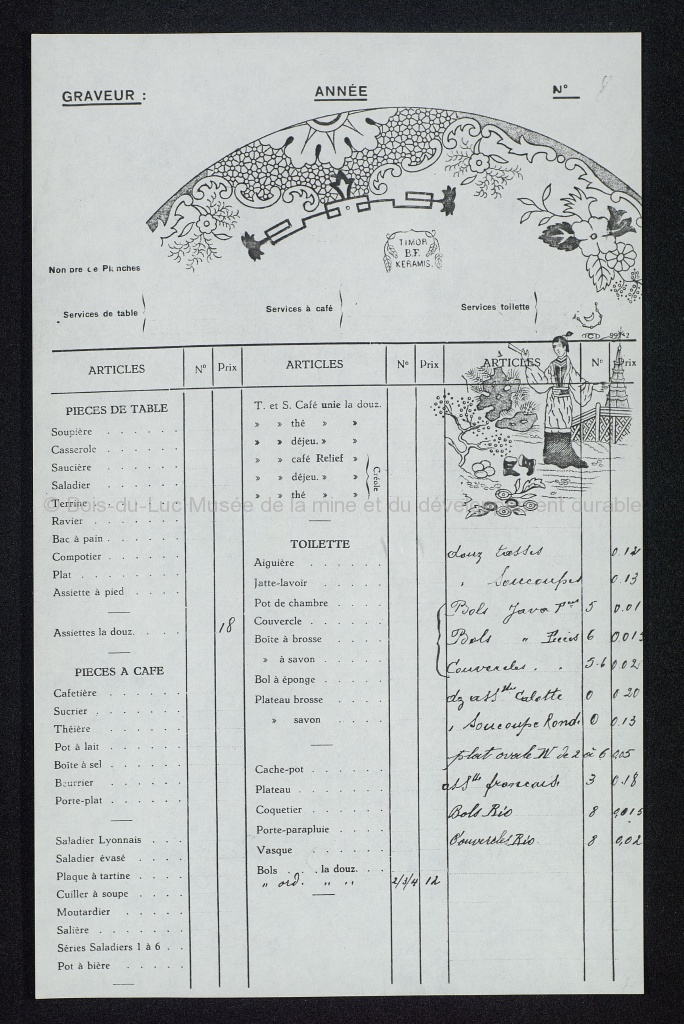 GRAVEUR :
ANNÉE
N°
8
TIMOR
B.F.
KERAMIS.
Services de table
Services à café
Services toilette
ARTICLES N° Prix
PIECES DE TABLE
Soupière
Casserole
Saucière
Saladier
Terrine
Ravier
Bac à pain
Compotier
Plat
Assiette à pied
Assiettes la douz. 18
PIECES A CAFE
Cafetière
Sucrier
Théière
Pot à lait
Boîte à sel
Beurrier
Porte-plat
Saladier Lyonnais
Saladier évasé
Plaque à tartine
Cuiller à soupe
Moutardier
Salière
Séries Saladiers 1 à 6
Pot à bière
ARTICLES N° Prix
T. et S. Café unie la douz.
» » thé » »
» » déjeu. » »
» » café Relief »
» » déjeu. » »
» » thé » »
Créole
TOILETTE
Aiguière
Jatte-lavoir
Pot de chambre
Couvercle
Boîte à brosse
» à savon
Bol à éponge
Plateau brosse
» savon
Cache-pot
Plateau
Coquetier
Porte-parapluie
Vasque
Bols . . la douz.
" ord. " " 2/3/4 12
ARTICLES N° Prix
douz tasses 0.12
" Soucoupes 0.13
Bols Java 5 0.01
Bols " 6 0015
Couvercles " " 5-6 0.02
Calotte 0 0.20
" Soucoupe Rond. 0 0.13
plat ovale N° de 2 à 6 005
français 3 0.18
Bols Rio 8 0015
Couvercles Rio 8 0,02
© Bois-du-Luc Musée de la mine et du développement durable